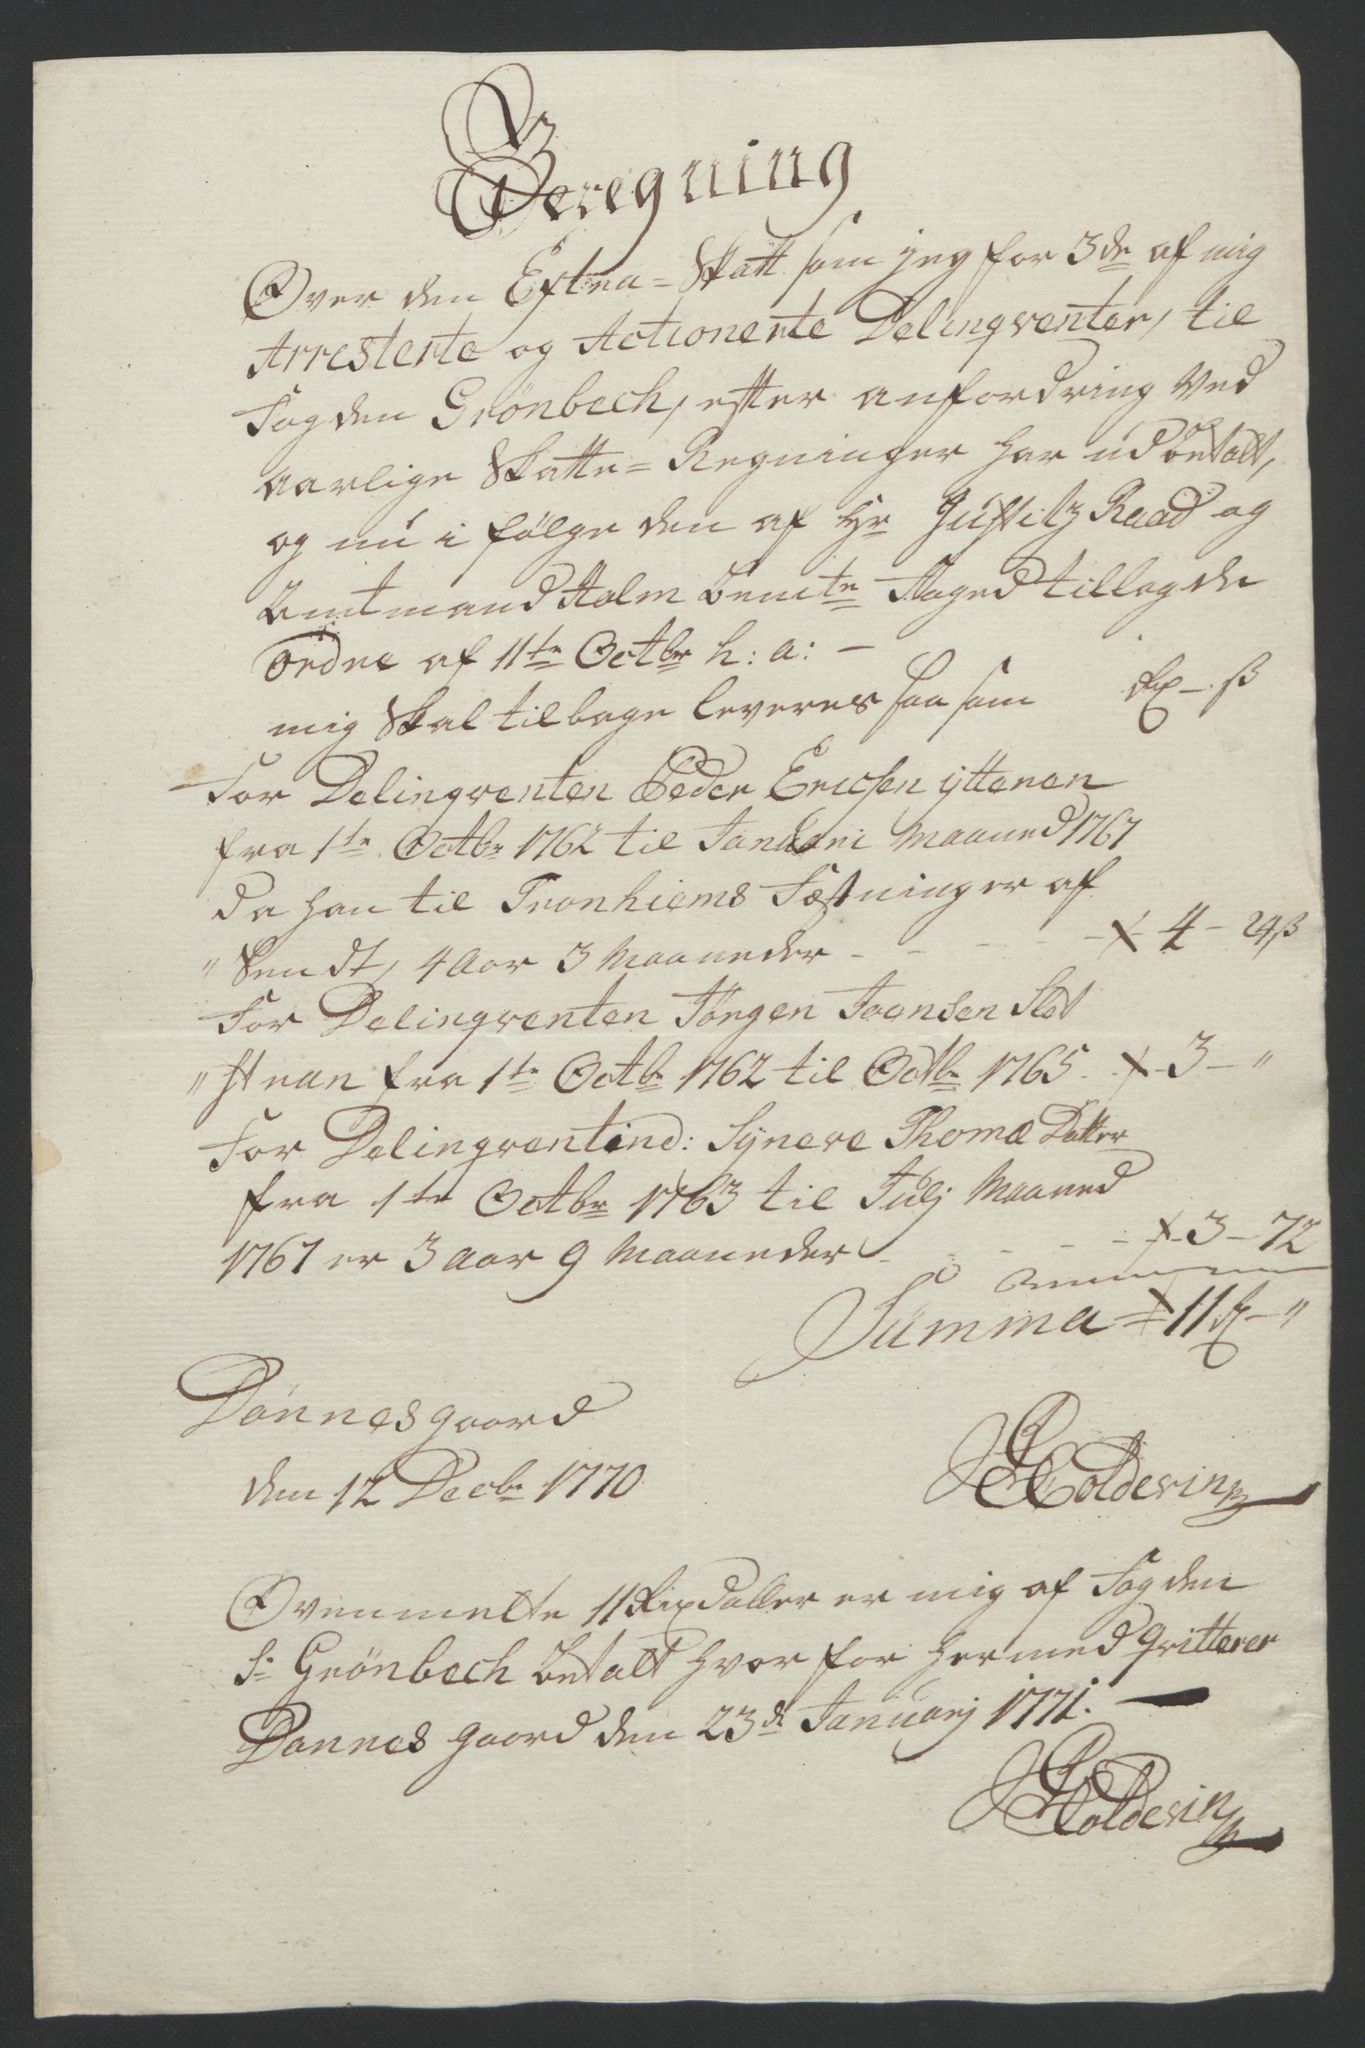 Beregning
Over den Extra-Skatt som jeg for 3de af mig
Arresterte og Actionerte Delinqventer, til
Fogden Grönbech, efter anfordring Ved
aarlige Skatte-Regninger har udbetalt,
og nu i følge den af Hr Justitz Raad og
Amtmand Holm bemte Foged tillagde
Ordre af 11te Octbr h: a: –
mig Skal tilbage leveres saa som Rx – ß
For Delinqventen Peder Ericksen ytteren
fra 1te Octbr 1762 til Januarii Maaned 1767
da han til Tronhiems Fæstninger af
" Sendt, 4 Aar 3 Maaneder - - - - 4 - 24ß
For Delinqventen Jörgen Joensen Slet
" Straan fra 1te Octbr 1762 til Octbr 1765 - 3 - "
For Delinqventind: Syneve Thomæ Datter
fra 1te Octbr 1763 til Julj Maaned
1767 er 3 aar 9 Maaneder - - - - 3 - 72
Summa = 11 R - "
Dønnesgaard
den 12 Decbr 1770
Coldevin
Ovenmelte 11 Rixdaller er mig af Fogden
Sr Grönbech betalt hvor for hermed qvitterer
Dønnes gaard den 23de Januarj 1771. –
Coldevin